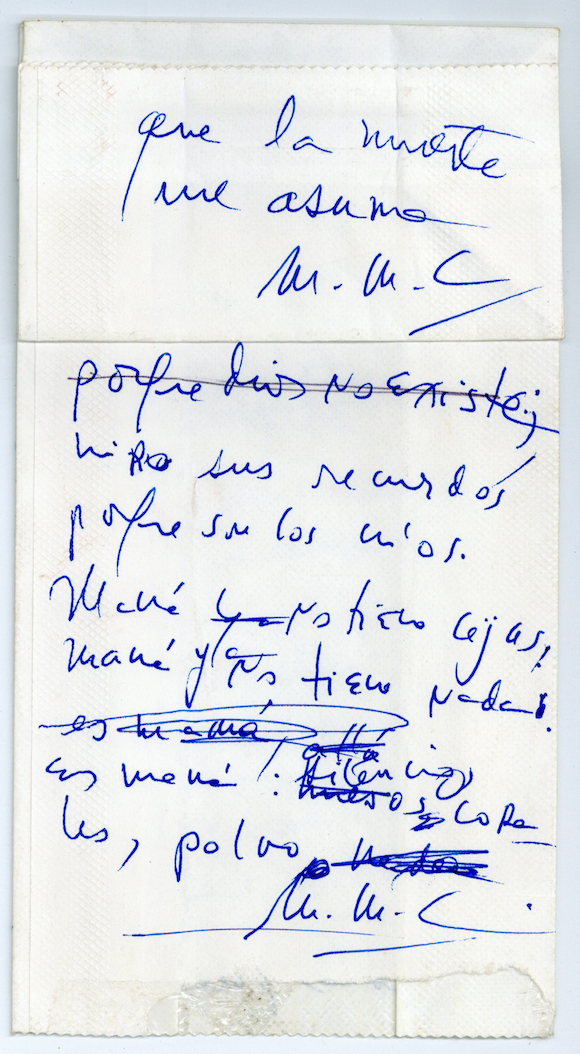 que la muerte
me asuma
M. M. C
porque dios no existe;
miro sus recuerdos
porque son los míos.
Mamá no tiene cejas,
mamá ya no tiene nada.
es mamá, allá
Es mamá! silencio,
huesos, cora
les, polvo
M. M. C.